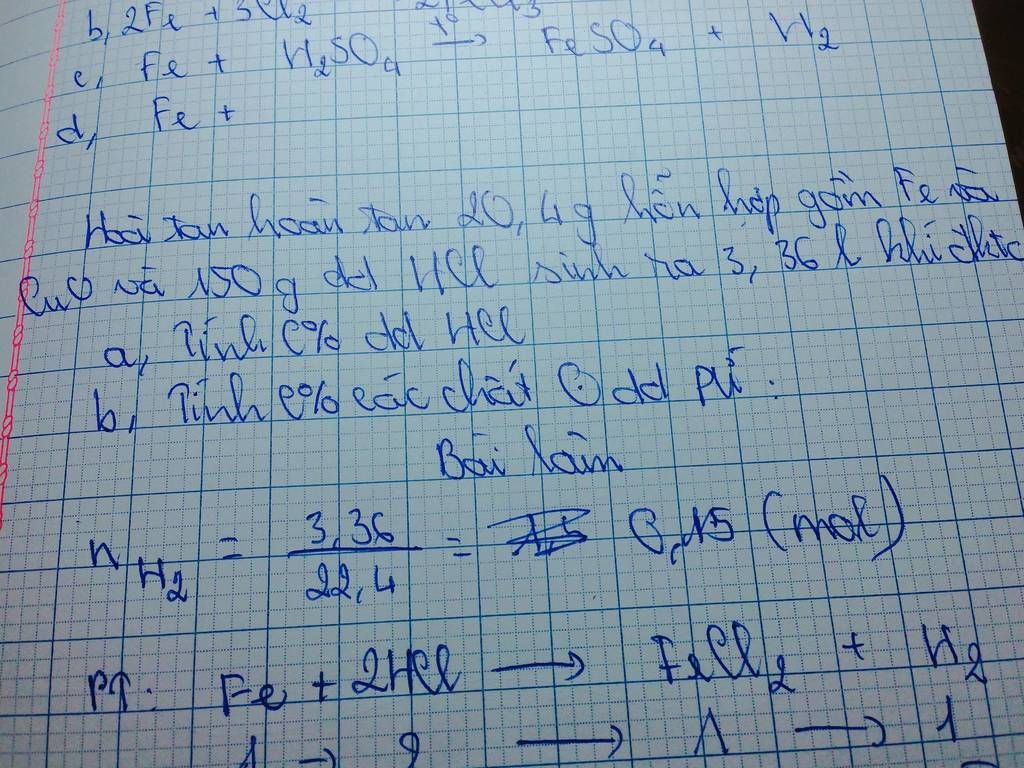 b, 2Fe + 3Cl2
c, Fe + H2SO4 t° → FeSO4 + H2
d, Fe +
Hoà tan hoàn tan 20,4g hỗn hợp gồm Fe và
CuO và 150g dd HCl sinh ra 3,36 l khí đktc
a, Tính C% dd HCl
b, Tính C% các chất dd PƯ.
Bài làm
nH2 = 3,36 / 22,4 = 0,15 (mol)
PT: Fe + 2HCl → FeCl2 + H2
1 → 2 → 1 → 1